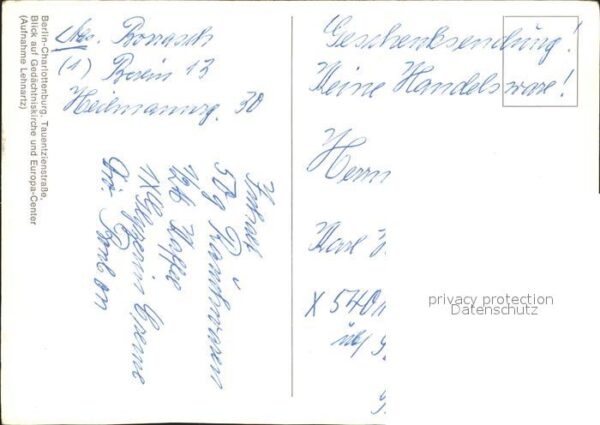 Berlin-Charlottenburg, Tauentzienstraße,
Blick auf Gedächtniskirche und Europa-Center
(Aufnahme Lehnartz)
Abs. Bonasch
(1) Berlin 13
30
Inhalt
50g
1/2 Kaffee
1x Glyzerin Creme
Bonbon
Geschenksendung!
Keine Handelsware!
Herrn
Karl
X 540
privacy protection
Datenschutz